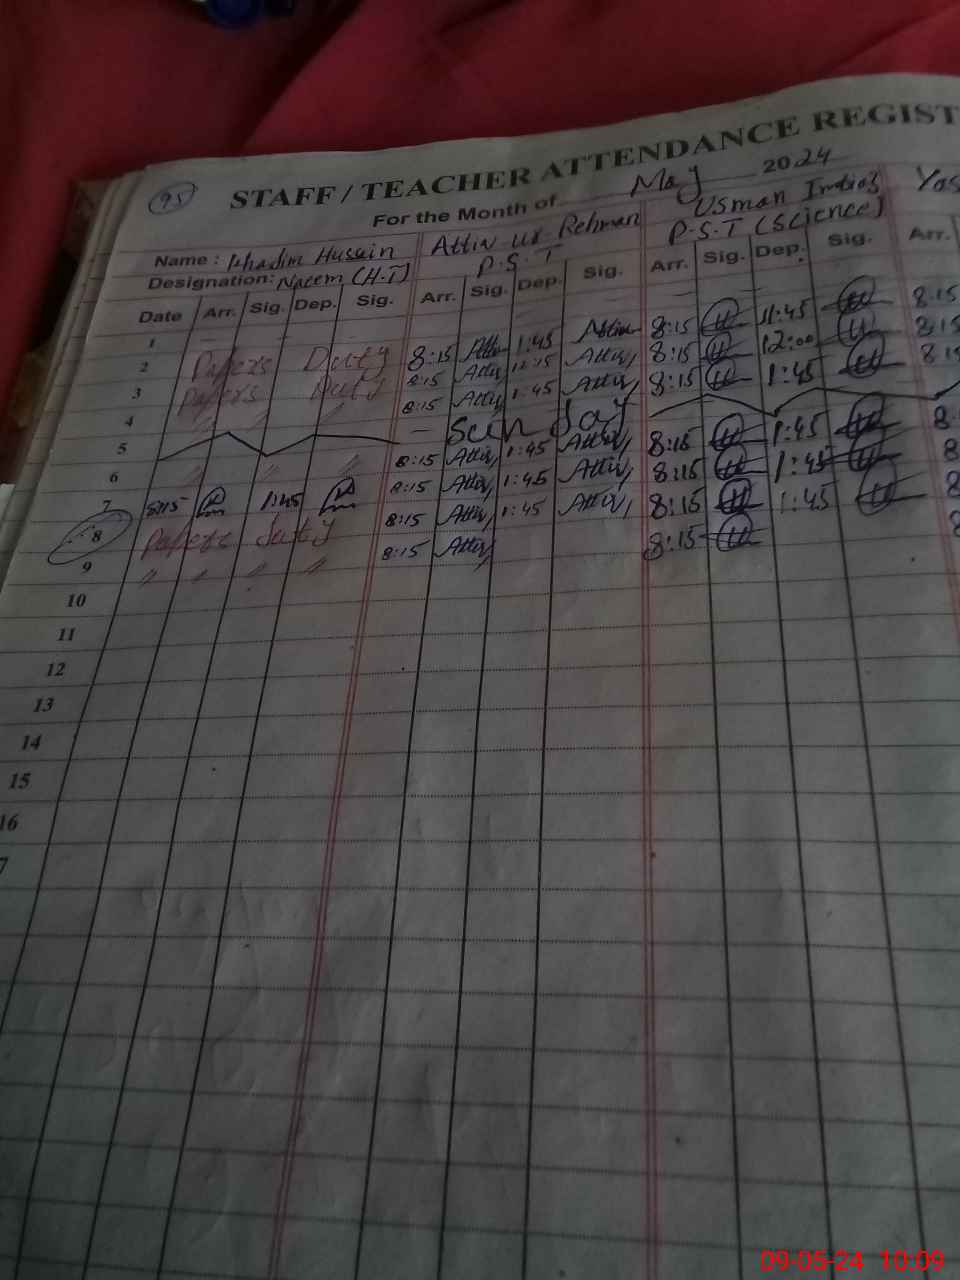 95
STAFF / TEACHER ATTENDANCE REGIST
For the Month of May 2024
Name : Khadim Hussain Attiq ur Rehman Usman Yas
Designation: Naeem (H.T) P.S.T P.S.T (Science)
Date Arr. Sig. Dep. Sig. Arr. Sig. Dep. Sig. Arr. Sig. Dep. Sig. Arr.
1
2 Papers Duty 8:15 Attiq 1:45 Attiq 8:15 11:45 8:15
3 Papers Duty 8:15 Attiq 12:15 Attiq 8:15 12:00 8:15
4 〃 〃 8:15 Attiq 1:45 Attiq 8:15 1:45 8:15
5 — Sunday
6 〃 〃 〃 8:15 Attiq 1:45 Attiq 8:15 1:45 8:
7 8:15 1:45 8:15 Attiq 1:45 Attiq 8:15 1:45 8
8 Papers duty 8:15 Attiq 1:45 Attiq 8:15 1:45 8
9 〃 〃 〃 〃 8:15 Attiq 8:15 8
10
11
12
13
14
15
16
7
09-05-24 10:09